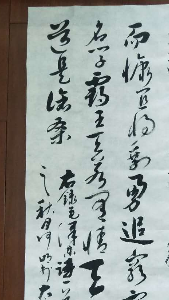 而慷宜将剩勇追穷
名学霸王天若有情天
道是沧桑
右录毛泽东诗一
之秋月